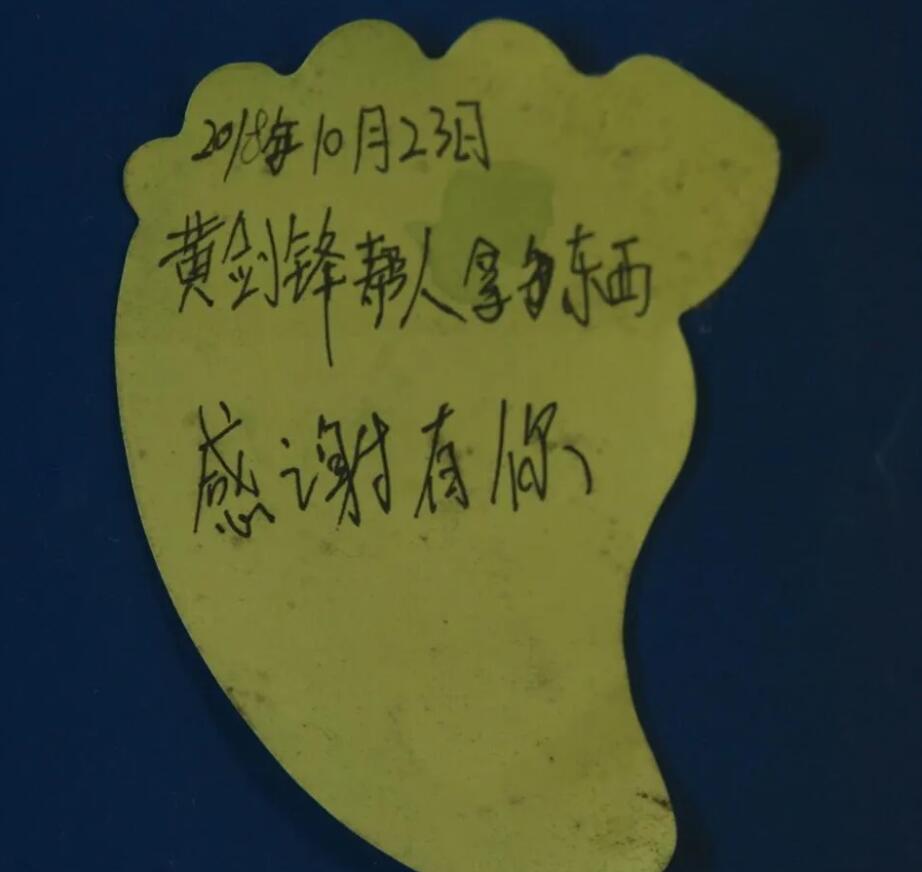 2018年10月23日
黄剑锋帮人拿东西
感谢有你